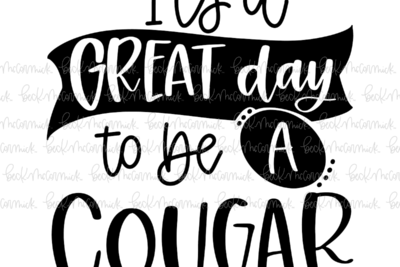 It's a
GREAT day
to be A
COUGAR